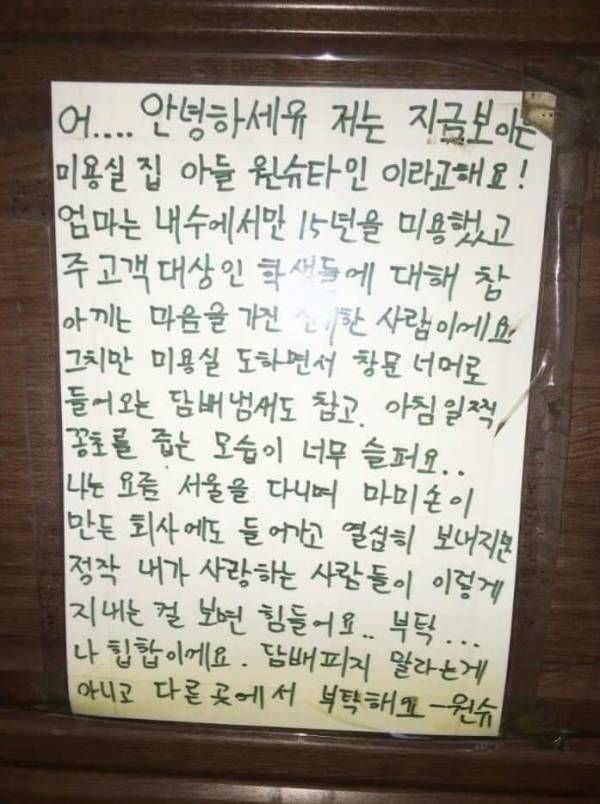 어.... 안녕하세유 저는 지금보이는
미용실 집 아들 원슈타인 이라고해요!
엄마는 내수에서만 15년을 미용했고
주 고객 대상인 학생들에 대해 참
아끼는 마음을 가진 사람이에요
그치만 미용실 도하면서 창문 너머로
들어오는 담배냄새도 참고. 아침일찍
꽁초를 줍는 모습이 너무 슬퍼요..
나는 요즘 서울을 다니며 마미손이
만든 회사에도 들어가고 열심히 보내지만
정작 내가 사랑하는 사람들이 이렇게
지내는 걸 보면 힘들어요.. 부탁...
나 힙합이에요. 담배피지 말라는게
아니고 다른곳에서 부탁해요 -원슈